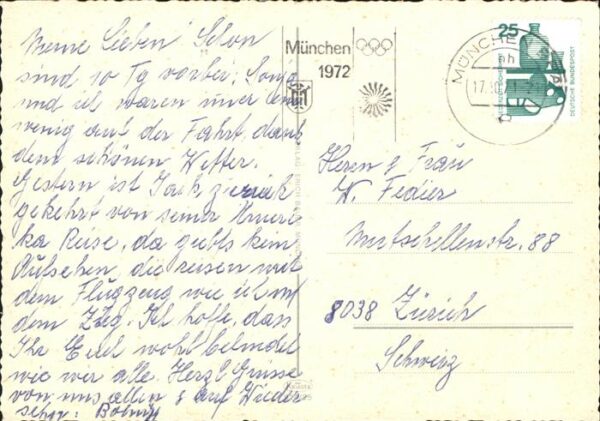 Meine Lieben! Schon
sind 10 Tg vorbei; Sonja
und ich waren immer ein
wenig auf der Fahrt, dank
dem schönen Wetter.
Gestern ist zurück
gekehrt von seiner Ameri
ka Reise, da gebts kein
Aufsehen, die reisen mit
dem Flugzeug wie ich mit
dem Zug. Ich hoffe, dass
Ihr Euch wohl befindet
wie wir alle. Herzl. Grüsse
von uns allen & auf Wieder
sehn:
München
1972
MÜNCHEN
25
DEUTSCHE BUNDESPOST
Herrn & Frau
W. Fedier
Mutschellenstr. 88
8038 Zürich
Schweiz